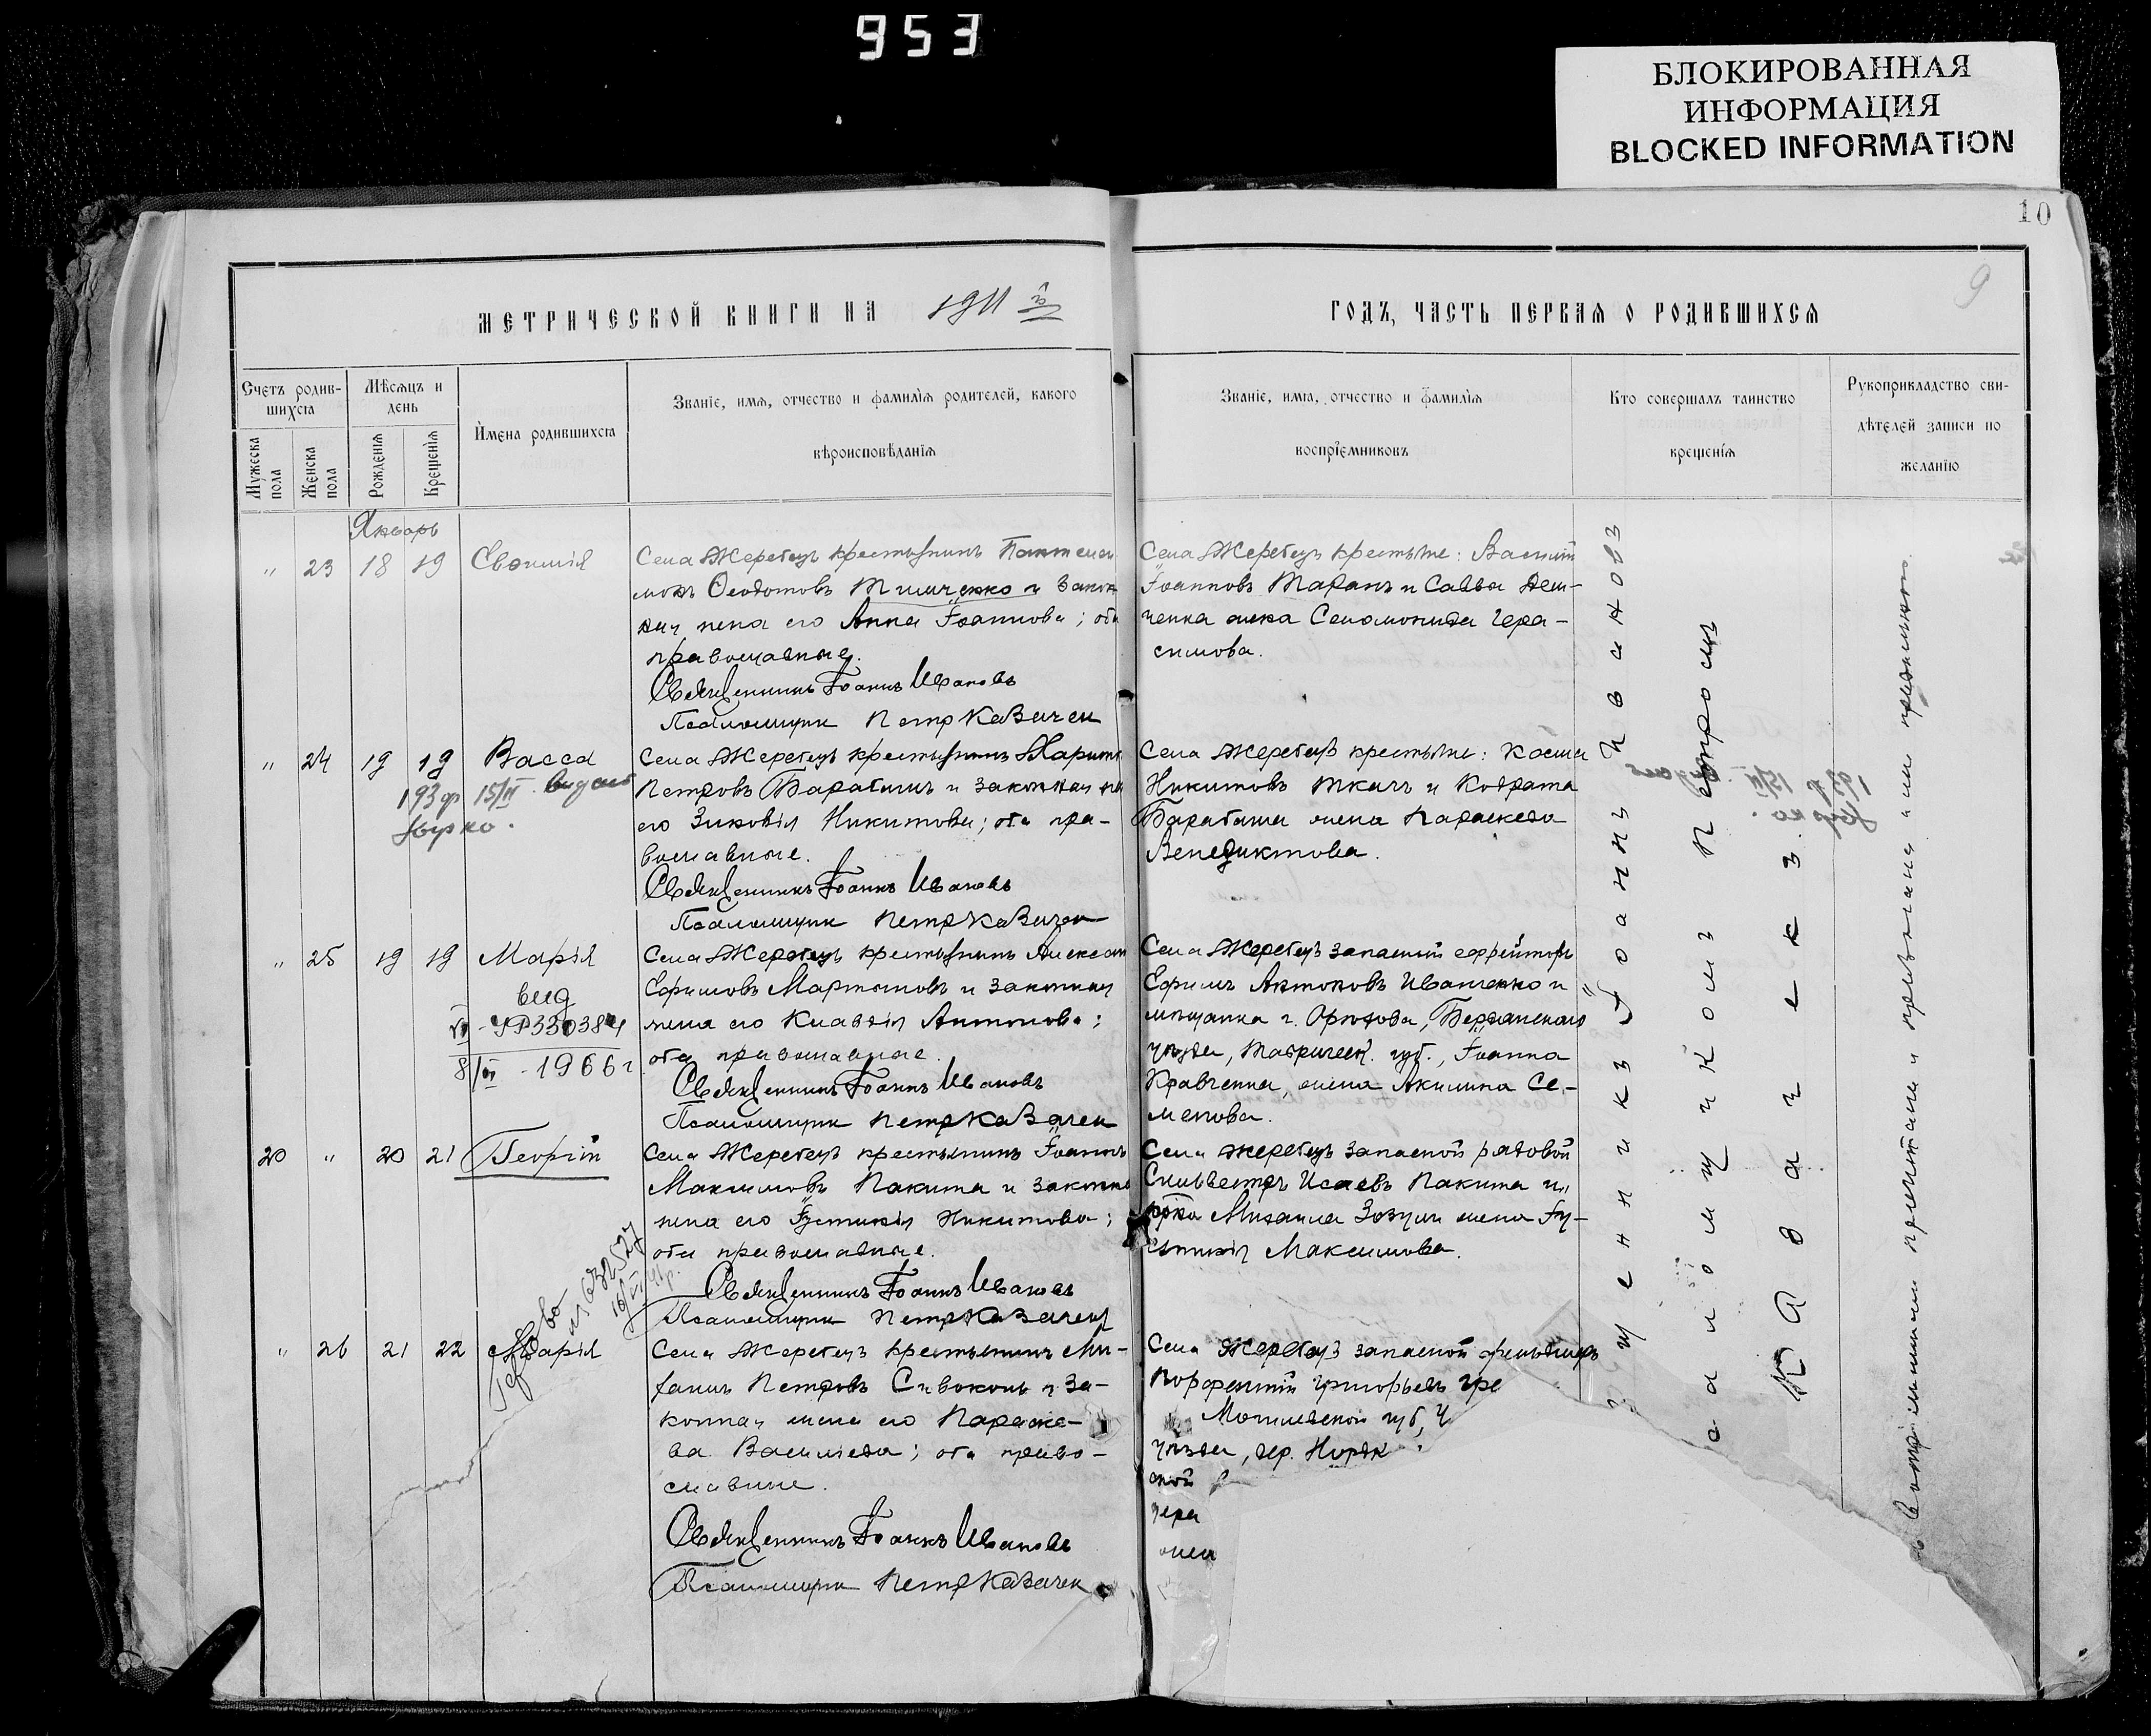 953
БЛОКИРОВАННАЯ
ИНФОРМАЦИЯ
BLOCKED INFORMATION
10
9
МЕТРИЧЕСКОЙ КНИГИ НА 1911 й
ГОДЪ, ЧАСТЬ ПЕРВАЯ О РОДИВШИХСЯ
Счетъ родив-
шихся
Мѣсяцъ и
день
Имена родившихся
Званіе, имя, отчество и фамилія родителей, какого
вѣроисповѣданія
Мужеска
пола
Женска
пола
Рожденія
Крещенія
Званіе, имя, отчество и фамилія
воспріемниковъ
Кто совершалъ таинство
крещенія
Рукоприкладство сви-
дѣтелей записи по
желанію
Январь
" 23 18 19 Евфимія
Села Жеребецъ крестьянинъ Пантелеи
монъ Ѳеодотовъ Тимченко и закон
ная жена его Анна Іоаннова; оба
православные.
Священникъ Іоаннъ Ивановъ
Псаломщикъ Петръ Казачек
Села Жеребецъ крестьяне: Василій
Іоанновъ Таранъ и Саввы Дем-
ченка жена Соломонида Гера-
симова.
" 24 19 19 Васса
15/II видано
Села Жеребецъ крестьянинъ Харитонъ
Петровъ Барабашъ и законная же
его Зиновія Никитова; оба пра-
вославные.
Священникъ Іоаннъ Ивановъ
Псаломщикъ Петръ Казачек
Села Жеребецъ крестьяне: Косма
Никитовъ Ткачъ и Кодрата
Барабаша жена Параскева
Венедиктова.
" 25 19 19 Марія
вид
VI-УР 330384
8/VI - 1966 г
Села Жеребецъ крестьянинъ Алексан
Ефимовъ Мартыновъ и законная
жена его Клавдія Антонова;
оба православные.
Священникъ Іоаннъ Ивановъ
Псаломщикъ Петръ Казачек
Села Жеребецъ запасный ефрейторъ
Ефимъ Антоновъ Иванченко и
мѣщанка г. Орѣхова, Бердянскаго
уѣзда, Таврическ. губ., Іоанна
Кравченка, жена Акилина Се-
менова.
20 " 20 21 Георгій
Села Жеребецъ крестьянинъ Іоаннъ
Максимовъ Пакита и законна
жена его Іустинія Никитова;
оба православные.
Священникъ Іоаннъ Ивановъ
Псаломщикъ Петръ Казачек
Села Жеребецъ запасной рядовой
Сильвестръ Исаевъ Пакита и
Михаила Зозули жена Іу-
стинія Максимова.
" 26 21 22 Марія
Села Жеребецъ крестьянинъ Ми-
хаилъ Петровъ Сивоконь и за-
конная жена его Параске-
ва Васильева; оба право-
славные.
Священникъ Іоаннъ Ивановъ
Псаломщикъ Петръ Казачек
Села Жеребецъ запасной
Порфентій Григорьевъ Гре
Могилевской губ, Ч
уѣзда, дер.
ской
Гера
жена
щенникъ Іоаннъ Ивановъ
саломщикомъ Петромъ
Казачекъ.